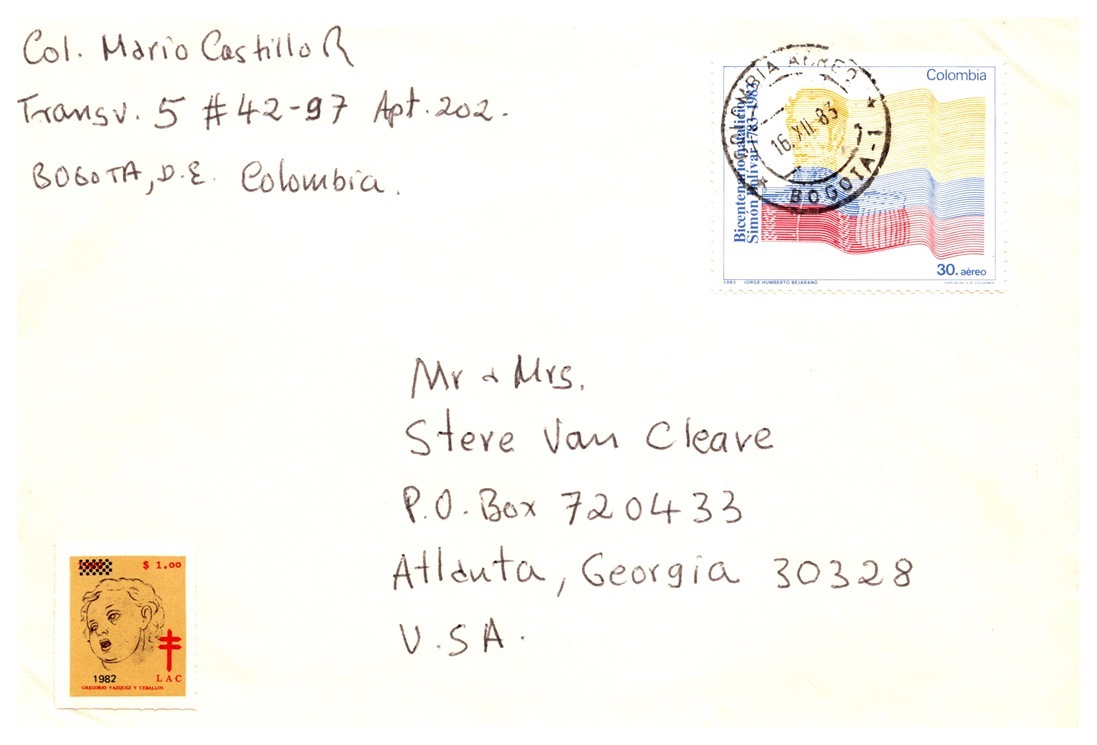 Col. Mario Castillo R
Transv. 5 # 42-97 Apt. 202.
BOGOTA, D.E. Colombia.
Colombia
Bicentenario natalicio
Simón Bolívar 1783-1983
30. aéreo
1983 JORGE HUMBERTO BEJARANO
COLOMBIA AEREO
16.XII.83
★ BOGOTA-1 ★
Mr & Mrs.
Steve Van Cleave
P.O. Box 720433
Atlanta, Georgia 30328
U.S.A.
$ 1.00
1982
LAC
GREGORIO VAZQUEZ Y CEBALLOS